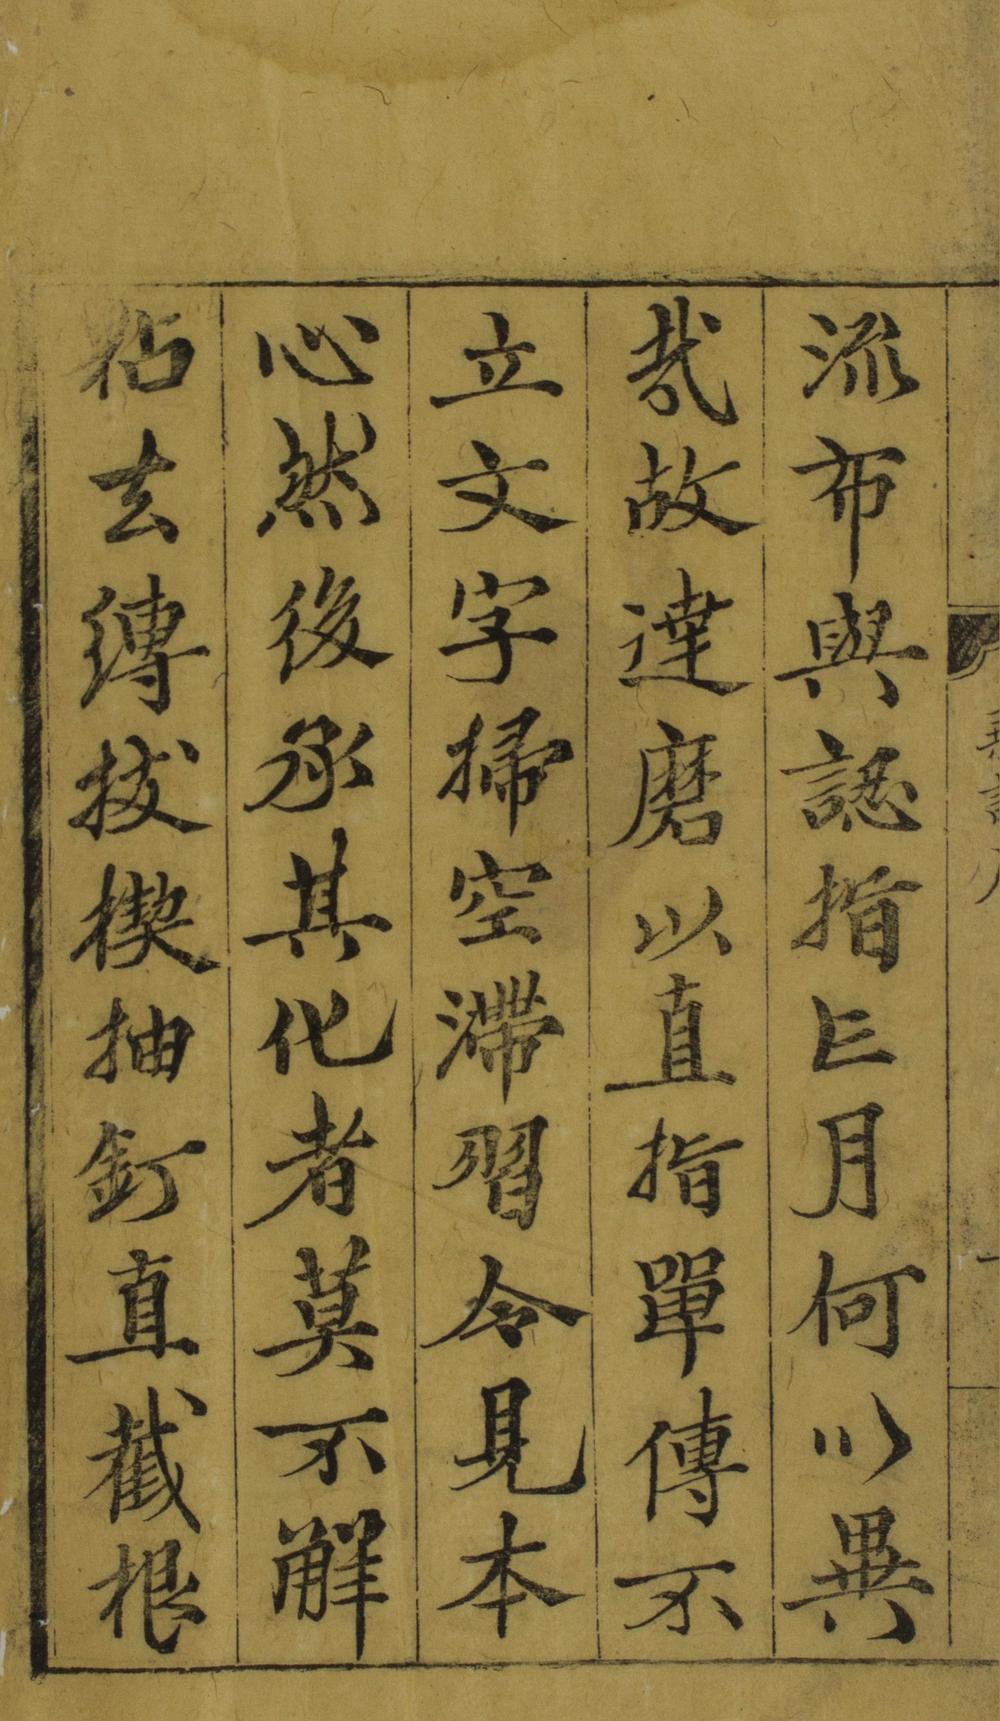 流布與認指亡月何以異
哉故達磨以直指單傳不
立文字掃空滯習令見本
心然後承其化者莫不解
粘去縛拔楔抽釘直截根